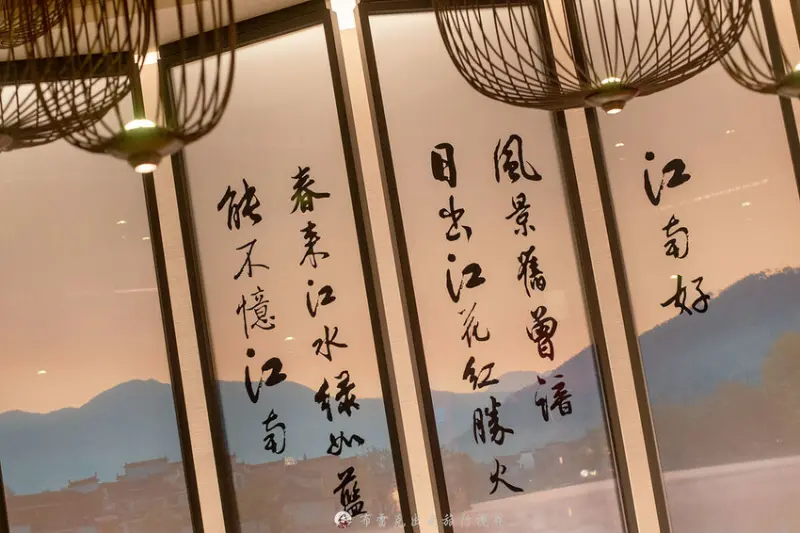 江南好
風景舊曾諳
日出江花紅勝火
春來江水綠如藍
能不憶江南
布雷克出走旅行視界